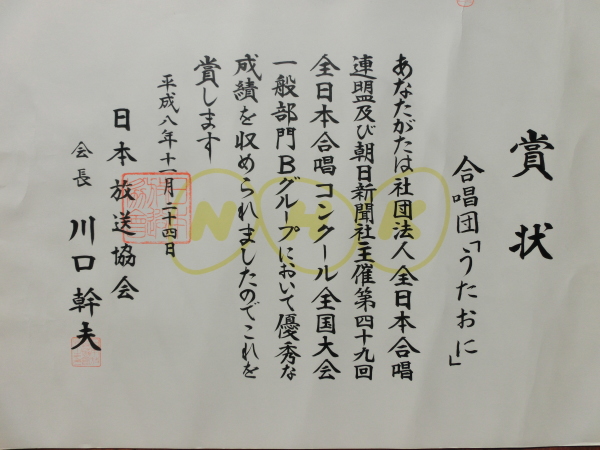 賞状
合唱団「うたおに」
あなたがたは社団法人全日本合唱
連盟及び朝日新聞社主催第四十九回
全日本合唱コンクール全国大会
一般部門Bグループにおいて優秀な
成績を収められましたのでこれを
賞します
平成八年十一月二十四日
日本放送協会
会長 川口幹夫
NHK